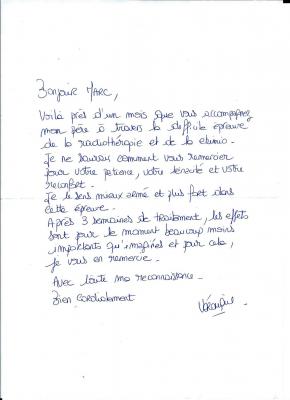 Bonjour MARC,
Voilà près d'un mois que vous accompagnez
mon père à travers la difficile épreuve
de la radiothérapie et de la chimio.
Je ne saurai comment vous remercier
pour votre patience, votre ténacité et votre
réconfort.
Je le sens mieux armé et plus fort dans
cette épreuve.
Après 3 semaines de traitement, les effets
sont pour le moment beaucoup moins
importants qu'imaginés et pour cela,
je vous en remercie.
Avec toute ma reconnaissance.
Bien cordialement
Véronique